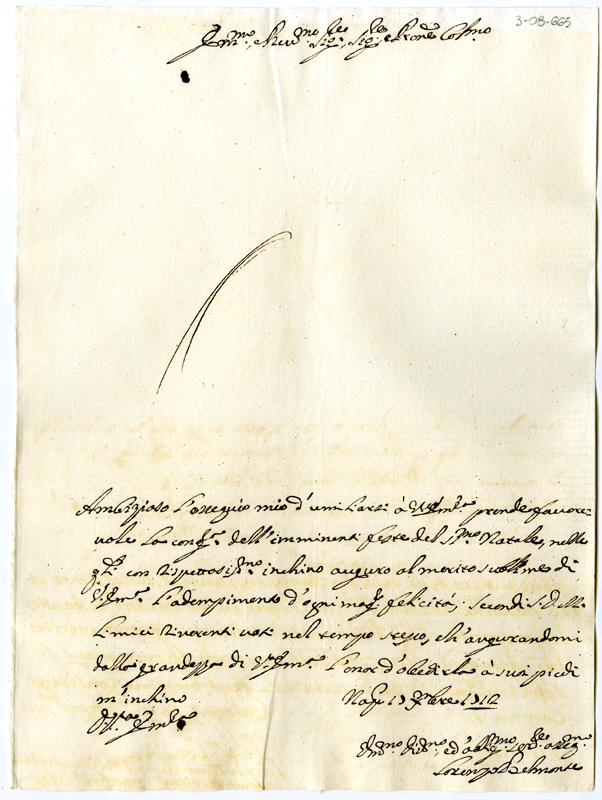 3-08-665
Em.mo, e Rev.mo Sig.re, Sig.re e Prone Col.mo
Ambizioso l'ossequio mio d'umiliarsi à V. Em.za prende favore-
vole la cong.ra dell'imminenti feste del S.mo Natale, nelle
q.li con rispettosis.mo inchino auguro al merito sublime di
V. Em.za l'adempimento d'ogni mag.r felicità; secondi
i miei riverenti voti nel tempo stesso, ch'augurandomi
dalla grandezza di V. Em.za l'onor d'obedirla à suoi piedi
m'inchino
Nap.
Di V. Em.za
Um.mo Div.mo, ed' oblig.mo
Lorenzo Belmonte